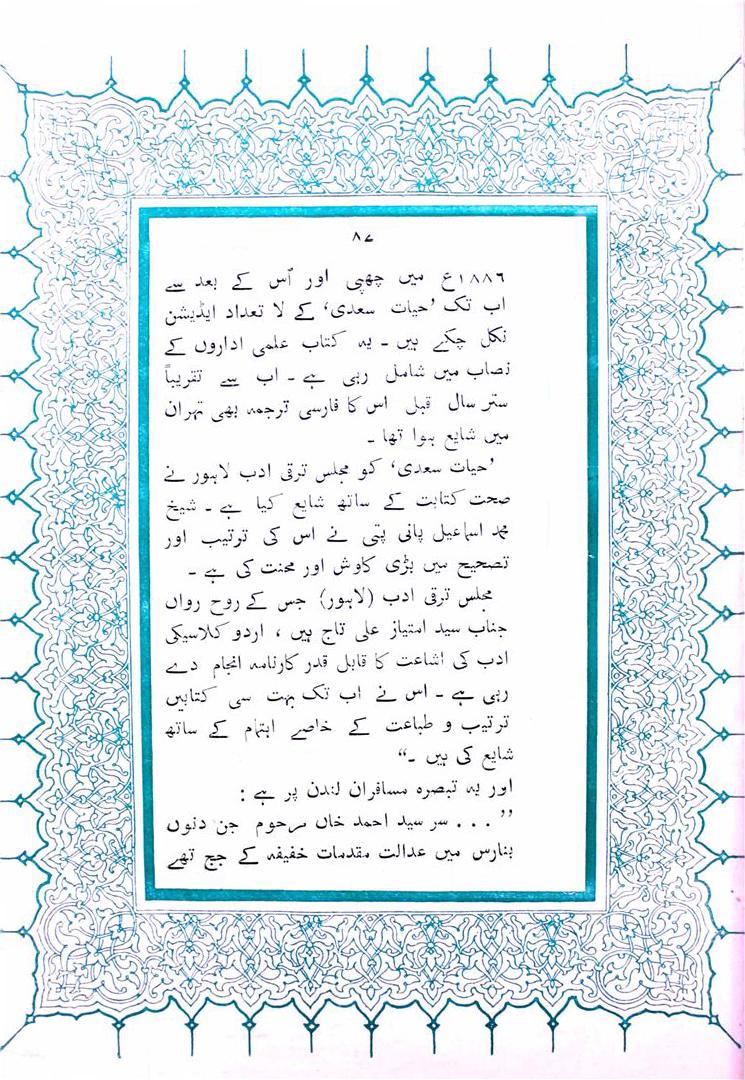 ۸۷
۱۸۸۶ع میں چھپی اور اُس کے بعد سے
اب تک ’حیات سعدی‘ کے لا تعداد ایڈیشن
نکل چکے ہیں ۔ یہ کتاب علمی اداروں کے
نصاب میں شامل رہی ہے ۔ اب سے تقریباً
ستر سال قبل اس کا فارسی ترجمہ بھی تہران
میں شایع ہوا تھا ۔
’حیات سعدی‘ کو مجلس ترقی ادب لاہور نے
صحت کتابت کے ساتھ شایع کیا ہے ۔ شیخ
محمد اسماعیل پانی پتی نے اس کی ترتیب اور
تصحیح میں بڑی کاوش اور محنت کی ہے ۔
مجلس ترقی ادب (لاہور) جس کے روح رواں
جناب سید امتیاز علی تاج ہیں ، اردو کلاسیکی
ادب کی اشاعت کا قابل قدر کارنامہ انجام دے
رہی ہے ۔ اس نے اب تک بہت سی کتابیں
ترتیب و طباعت کے خاصے اہتمام کے ساتھ
شایع کی ہیں ۔“
اور یہ تبصرہ مسافران لندن پر ہے :
”. . . سر سید احمد خاں مرحوم جن دنوں
بنارس میں عدالت مقدمات خفیفہ کے جج تھے